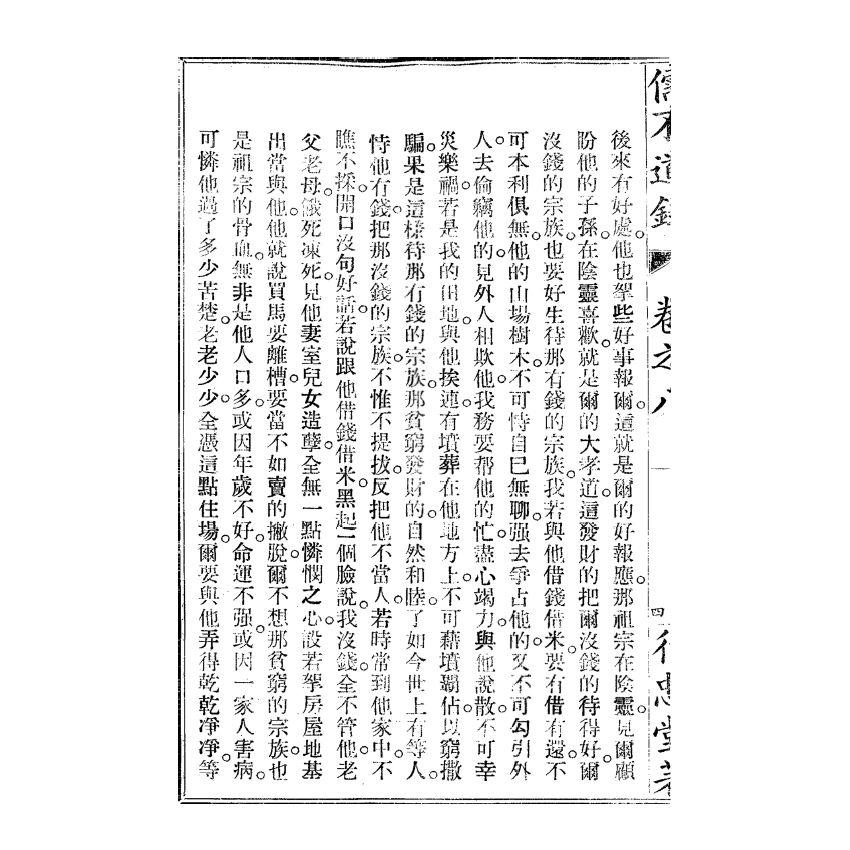 後來有好處。他也拏些好事報爾。這就是爾的好報應。那祖宗在陰靈。見爾顧
盼他的子孫。在陰靈喜歡。就是爾的大孝道。這發財的把爾沒錢的待得好。爾
沒錢的宗族。也要好生待那有錢的宗族。我若與他借錢借米。要有借有還。不
可本利俱無。他的山場樹木。不可恃自己無聊。强去爭占他的。又不可勾引外
人。去偷竊他的。見外人相欺他。我務要帮他的忙。盡心竭力。與他說散。不可幸
災樂禍。若是我的田地。與他挨連。有墳葬在他地方上。不可藉墳霸佔。以窮撒
騙。果是這樣待那有錢的宗族。那貧窮發財的。自然和睦了。如今世上有等人。
恃他有錢。把那沒錢的宗族。不惟不提拔。反把他不當人。若時常到他家中。不
瞧不採。開口沒句好話。若說跟他借錢借米。黑起一個臉說。我沒錢。全不管他老
父老母。餓死凍死。見他妻室兒女造孽。全無一點憐憫之心。設若拏房屋地基
出當與他。他就說買馬要離槽。要當不如賣的撇脫。爾不想那貧窮的宗族。也
是祖宗的骨血。無非是他人口多。或因年歲不好。命運不强。或因一家人害病。
可憐他過了多少苦楚。老老少少。全憑這點住場。爾要與他弄得乾乾凈凈。等
卷之八
四